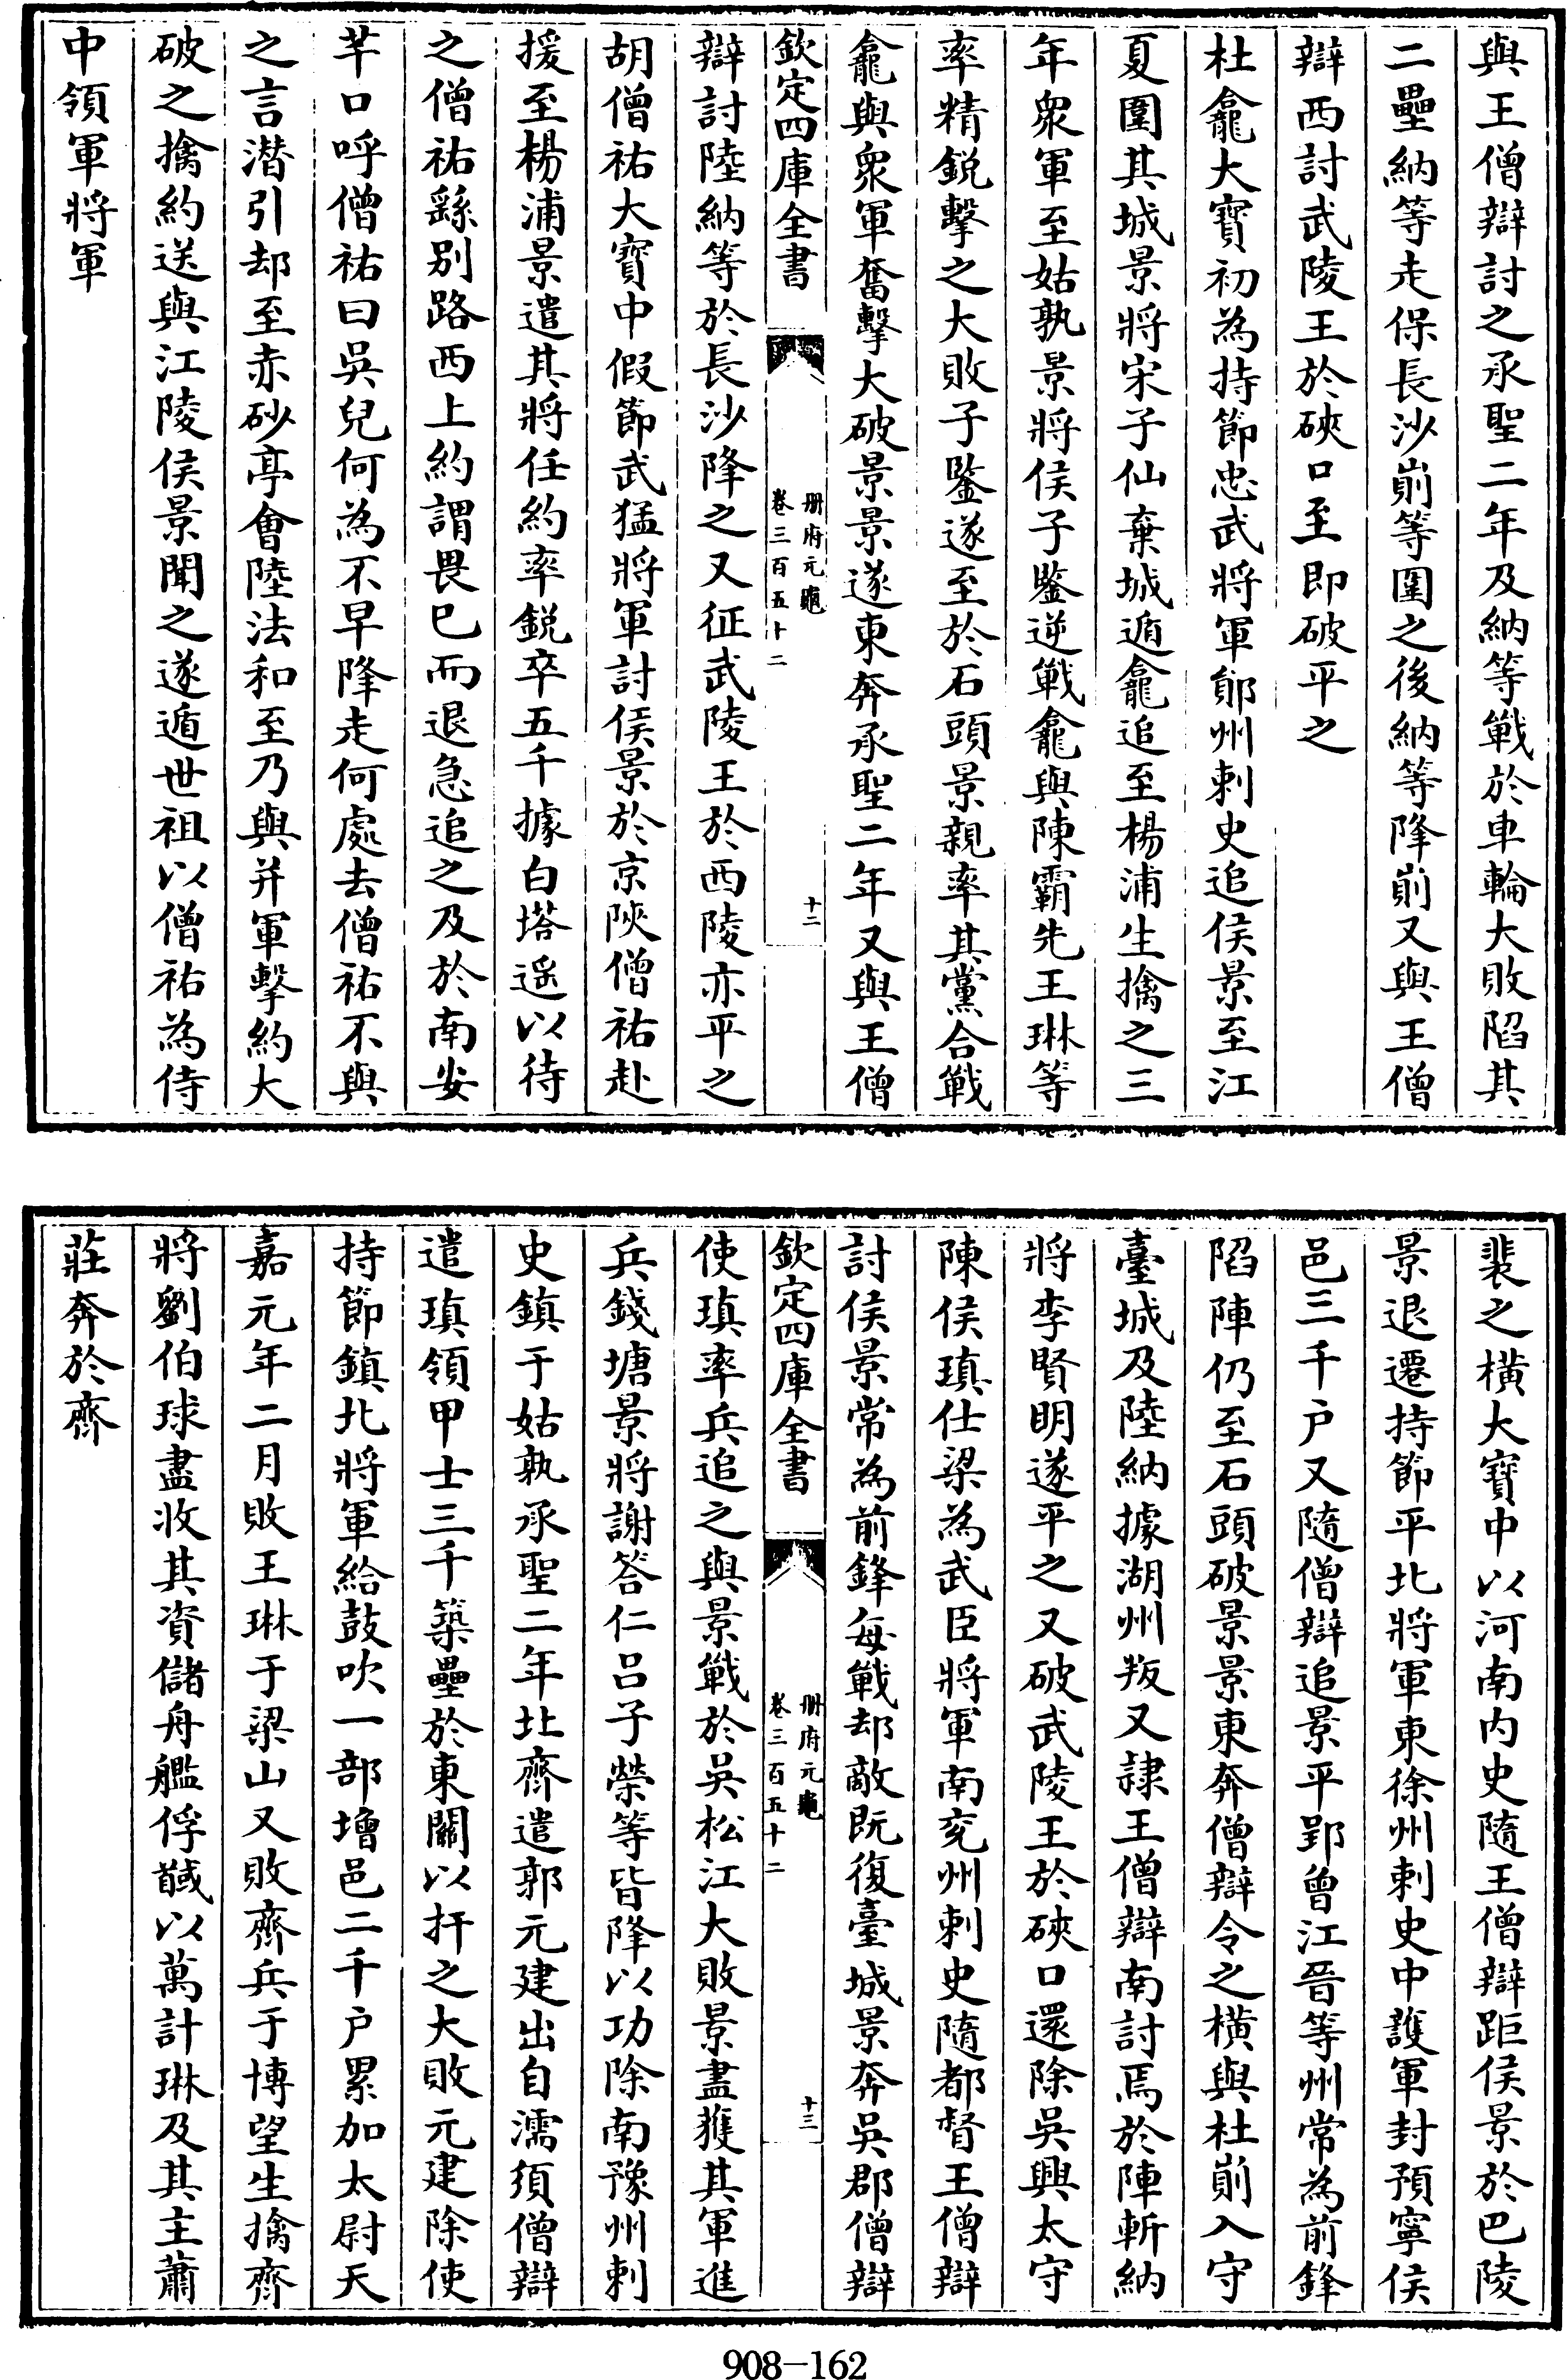 與王僧辯討之承聖二年及納等戰於車輪大敗陷其
二壘納等走保長沙崱等圍之後納等降崱又與王僧
辯西討武陵王於硤口至即破平之
杜龕大寳初為持節忠武將軍鄖州刺史追侯景至江
夏圍其城景將宋子仙棄城遁龕追至楊浦生擒之三
年衆軍至姑孰景將侯子鑒逆戰龕與陳霸先王琳等
率精鋭擊之大敗子鑒遂至於石頭景親率其黨合戰
龕與衆軍奮擊大破景景遂東奔承聖二年又與王僧
欽定四庫全書
册府元龜
卷三百五十二
十二
辯討陸納等於長沙降之又征武陵王於西陵亦平之
胡僧祐大寳中假節武猛將軍討侯景於京陝僧祐赴
援至楊浦景遣其將任約率鋭卒五千據白塔遥以待
之僧祐繇别路西上約謂畏已而退急追之及於南安
芊口呼僧祐曰吳兒何為不早降走何處去僧祐不與
之言潜引却至赤砂亭會陸法和至乃與并軍擊約大
破之擒約送與江陵侯景聞之遂遁世祖以僧祐為侍
中領軍將軍
裴之横大寳中以河南内史隨王僧辯距侯景於巴陵
景退遷持節平北將軍東徐州刺史中護軍封預寧侯
邑三千户又隨僧辯追景平郢曾江晉等州常為前鋒
陷陣仍至石頭破景景東奔僧辯令之横與杜崱入守
臺城及陸納據湖州叛又隷王僧辯南討焉於陣斬納
將李賢明遂平之又破武陵王於硤口還除吳興太守
陳侯瑱仕梁為武臣將軍南兖州刺史隨都督王僧辯
討侯景常為前鋒每戰却敵既復臺城景奔吳郡僧辯
欽定四庫全書
册府元龜
卷三百五十二
十三
使瑱率兵追之與景戰於吳松江大敗景盡獲其軍進
兵錢塘景將謝答仁吕子榮等皆降以功除南豫州刺
史鎮于姑孰承聖二年北齊遣郭元建出自濡須僧辯
遣瑱領甲士三千築壘於東關以扞之大敗元建除使
持節鎮北將軍給鼓吹一部增邑二千户累加太尉天
嘉元年二月敗王琳于梁山又敗齊兵于博望生擒齊
將劉伯球盡收其資儲舟艦俘馘以萬計琳及其主蕭
莊奔於齊
908-162